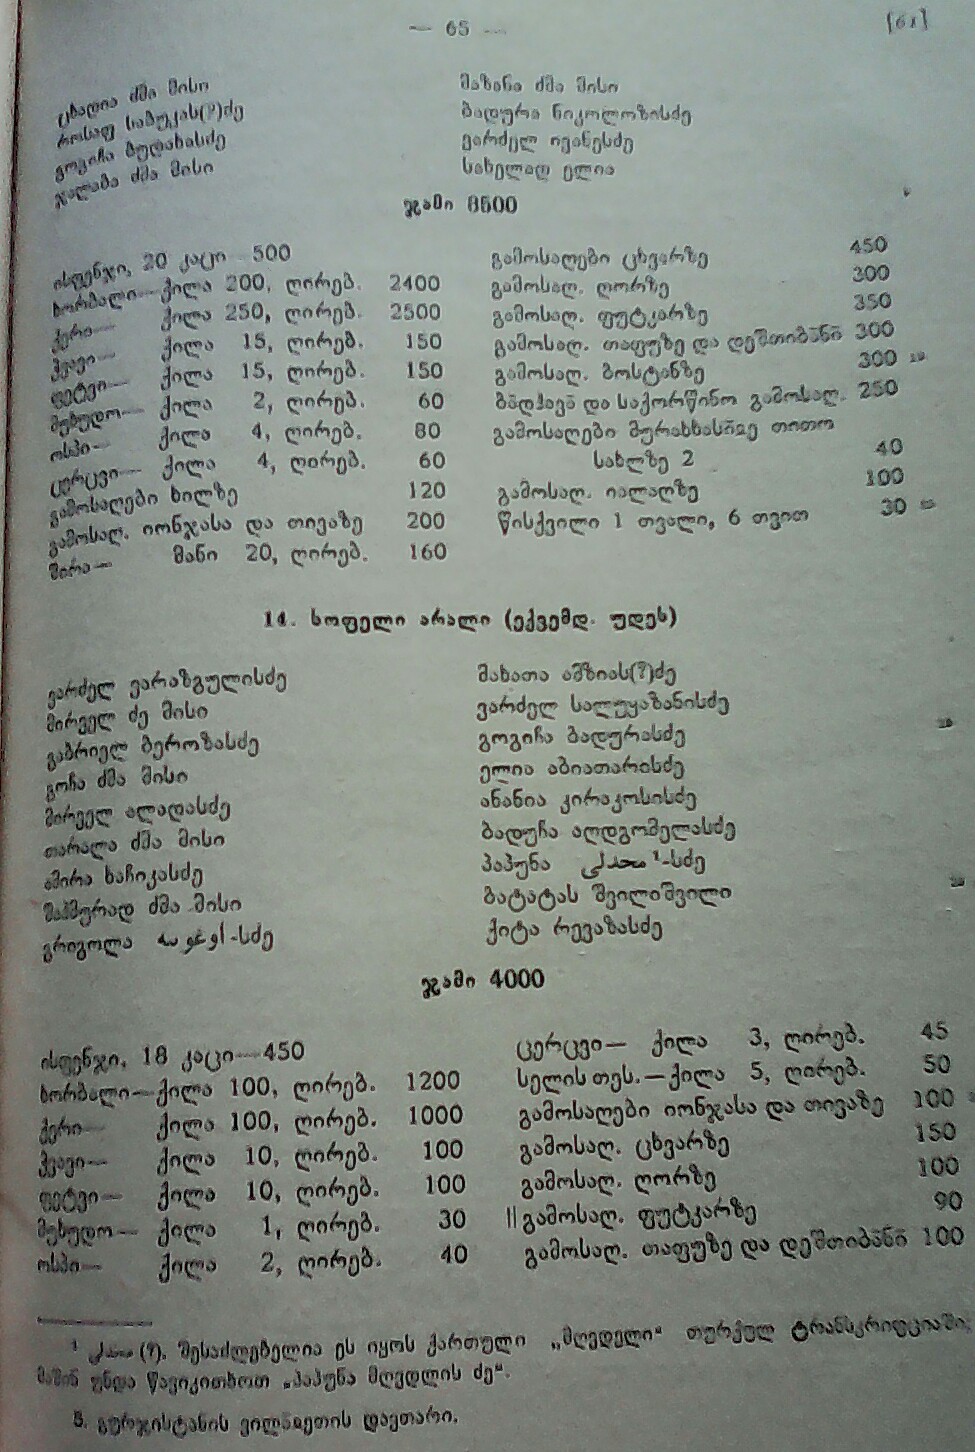 — 65 —
[61]
ცხადია ძმა მისი
როსაფ საბუკას(?)ძე
გოგიჩა ბუდახასძე
ჯალაბა ძმა მისი
მაზანა ძმა მისი
ბადურა ნიკოლოზისძე
ვარძელ ივანესძე
სახელად ელია
ჯამი 8500
ისფენჯი, 20 კაცი 500
ხორბალი— ქილა 200, ღირებ. 2400
ქერი— ქილა 250, ღირებ. 2500
ჭვავი— ქილა 15, ღირებ. 150
ფეტვი— ქილა 15, ღირებ. 150
მუხუდო— ქილა 2, ღირებ. 60
ოსპი— ქილა 4, ღირებ. 80
ცერცვი— ქილა 4, ღირებ. 60
გამოსაღები ხილზე 120
გამოსაღ. იონჯასა და თივაზე 200
შირა— მანი 20, ღირებ. 160
გამოსაღები ცხვარზე 450
გამოსაღ. ღორზე 300
გამოსაღ. ფუტკარზე 350
გამოსაღ. თაფუზე და დეშთიბანი 300
გამოსაღ. ბოსტანზე 300
ბადჰავა და საქორწინო გამოსაღ. 250
გამოსაღები თითო
სახლზე 2 40
გამოსაღ. იალაღზე 100
წისქვილი 1 თვალი, 6 თვით 30
14. სოფელი არალი (ექვემდ. უდეს)
ვარძელ ვარაზგულისძე
მირველ ძე მისი
გაბრიელ ბეროზასძე
გოჩა ძმა მისი
მირველ ალადასძე
თარალა ძმა მისი
ამირა ხაჩიკასძე
შაჰმურად ძმა მისი
გრიგოლა -სძე
მახათა ამზიას(?)ძე
ვარძელ სალუყაზანისძე
გოგიჩა ბადურასძე
ელია აბიათარისძე
ანანია კირაკოსისძე
ბადუჩა აღდგომელასძე
პაპუნა ¹-სძე
ბატატას შვილიშვილი
ქიტა რევაზასძე
ჯამი 4000
ისფენჯი, 18 კაცი—450
ხორბალი—ქილა 100, ღირებ. 1200
ქერი— ქილა 100, ღირებ. 1000
ჭვავი— ქილა 10, ღირებ. 100
ფეტვი— ქილა 10, ღირებ. 100
მუხუდო— ქილა 1, ღირებ. 30
ოსპი— ქილა 2, ღირებ. 40
ცერცვი— ქილა 3, ღირებ. 45
სელის თეს.—ქილა 5, ღირებ. 50
გამოსაღები იონჯასა და თივაზე 100
გამოსაღ. ცხვარზე 150
გამოსაღ. ღორზე 100
||გამოსაღ. ფუტკარზე 90
გამოსაღ. თაფუზე და დეშთიბანი 100
¹ (?). შესაძლებელია ეს იყოს ქართული „მღვდელი“ თურქულ ტრანსკრიფციაში;
მაშინ უნდა წავიკითხოთ „პაპუნა მღვდლის ძე“.
5. გურჯისტანის ვილაიეთის დავთარი.